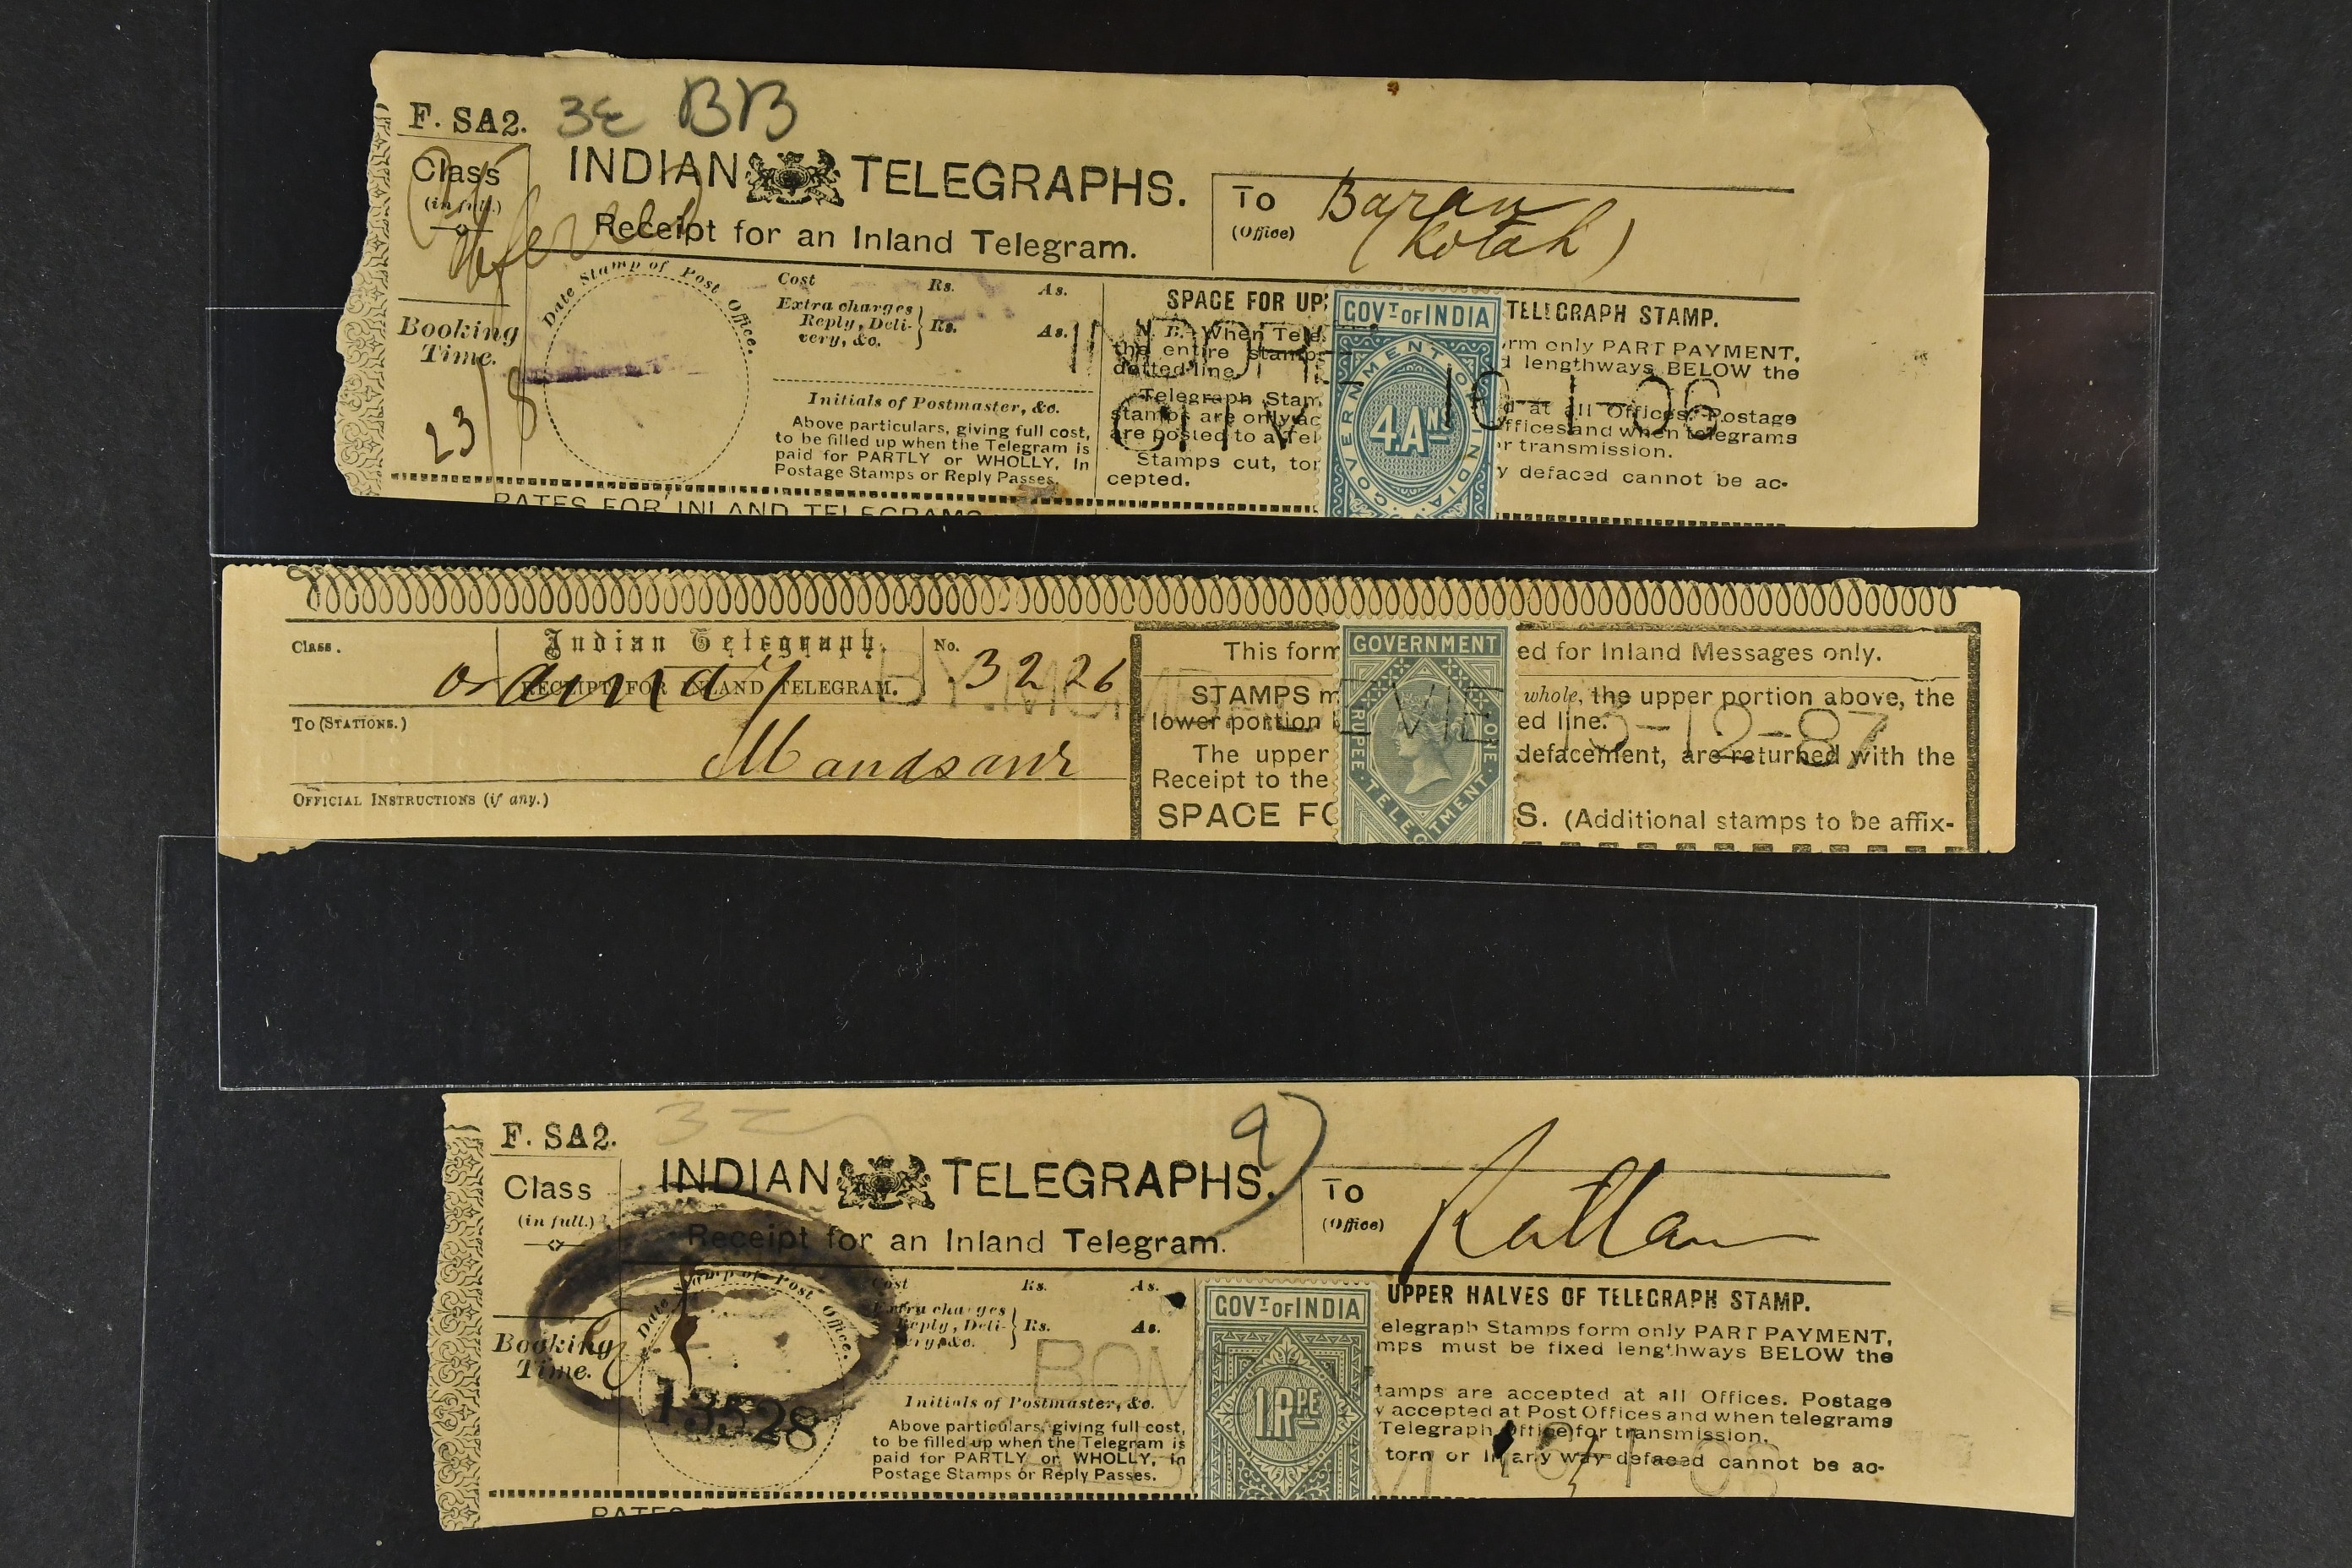 F. SA2. 3ε BB
INDIAN TELEGRAPHS.
Class
(in full.)
Deferred
Receipt for an Inland Telegram.
To
(Office)
Baran
(Kotah)
Booking
Time.
23/8
Date Stamp of Post Office.
Cost Rs. As.
Extra charges
Reply, Deli-
very, &c. } Rs. As.
Initials of Postmaster, &c.
Above particulars, giving full cost,
to be filled up when the Telegram is
paid for PARTLY or WHOLLY, in
Postage Stamps or Reply Passes.
SPACE FOR UP
TELEGRAPH STAMP.
N. B.—When Tele
rm only PART PAYMENT,
the entire stamps
d lengthways BELOW the
dotted line
Telegraph Stam
d at all Offices. Postage
stamps are only ac
ffices and when telegrams
are posted to a Tel
r transmission.
Stamps cut, tor
y defaced cannot be ac-
cepted.
INDORE
CITY
18-1-06
GOVT OF INDIA
GOVERNMENT OF INDIA
4.ANS
GOVERNMENT OF INDIA
RATES FOR INLAND TELEGRAMS
Class.
Indian Telegraph.
RECEIPT FOR INLAND TELEGRAM.
No. 3226
To (STATIONS.)
Mandsaur
OFFICIAL INSTRUCTIONS (if any.)
This form
ed for Inland Messages only.
STAMPS m
whole, the upper portion above, the
lower portion
ed line.
The upper
defacement, are returned with the
Receipt to the
SPACE FO
S. (Additional stamps to be affix-
13-12-87
GOVERNMENT
RUPEE
ONE
F. SA2.
9)
INDIAN TELEGRAPHS.
Class
(in full.)
Receipt for an Inland Telegram.
To
(Office)
Rutlam
Booking
Time.
Date Stamp of Post Office.
13528
Cost Rs. As.
Extra charges
Reply, Deli-
very, &c. } Rs. As.
Initials of Postmaster, &c.
Above particulars, giving full cost,
to be filled up when the Telegram is
paid for PARTLY or WHOLLY, in
Postage Stamps or Reply Passes.
UPPER HALVES OF TELEGRAPH STAMP.
elegraph Stamps form only PART PAYMENT,
mps must be fixed lengthways BELOW the
tamps are accepted at all Offices. Postage
y accepted at Post Offices and when telegrams
Telegraph Office for transmission.
torn or in any way defaced cannot be ac-
GOVT OF INDIA
1.RPE
BOM